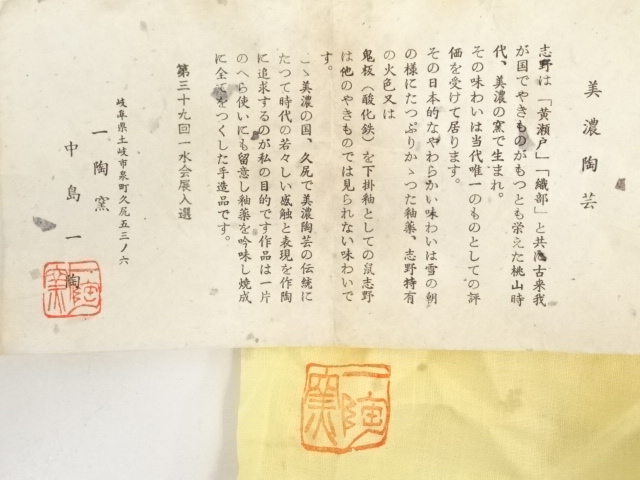 美濃陶芸
志野は「黄瀬戸」「織部」と共に古来我
が国でやきものがもつとも栄えた桃山時
代、美濃の窯で生まれ。
その味わいは当代唯一のものとしての評
価を受けて居ります。
その日本的なやわらかい味わいは雪の朝
の様にたつぷりかゝつた釉薬、志野特有
の火色又は
鬼板（酸化鉄）を下掛釉としての鼠志野
は他のやきものでは見られない味わいで
す。
こゝ美濃の国、久尻で美濃陶芸の伝統に
たつて時代の若々しい感触と表現を作陶
に追求するのが私の目的です作品は一片
のへら使いにも留意し釉薬を吟味し焼成
に全てをつくした手造品です。
第三十九回一水会展入選
岐阜県土岐市泉町久尻五三ノ六
一陶窯
中島一陶
一陶窯
一陶窯